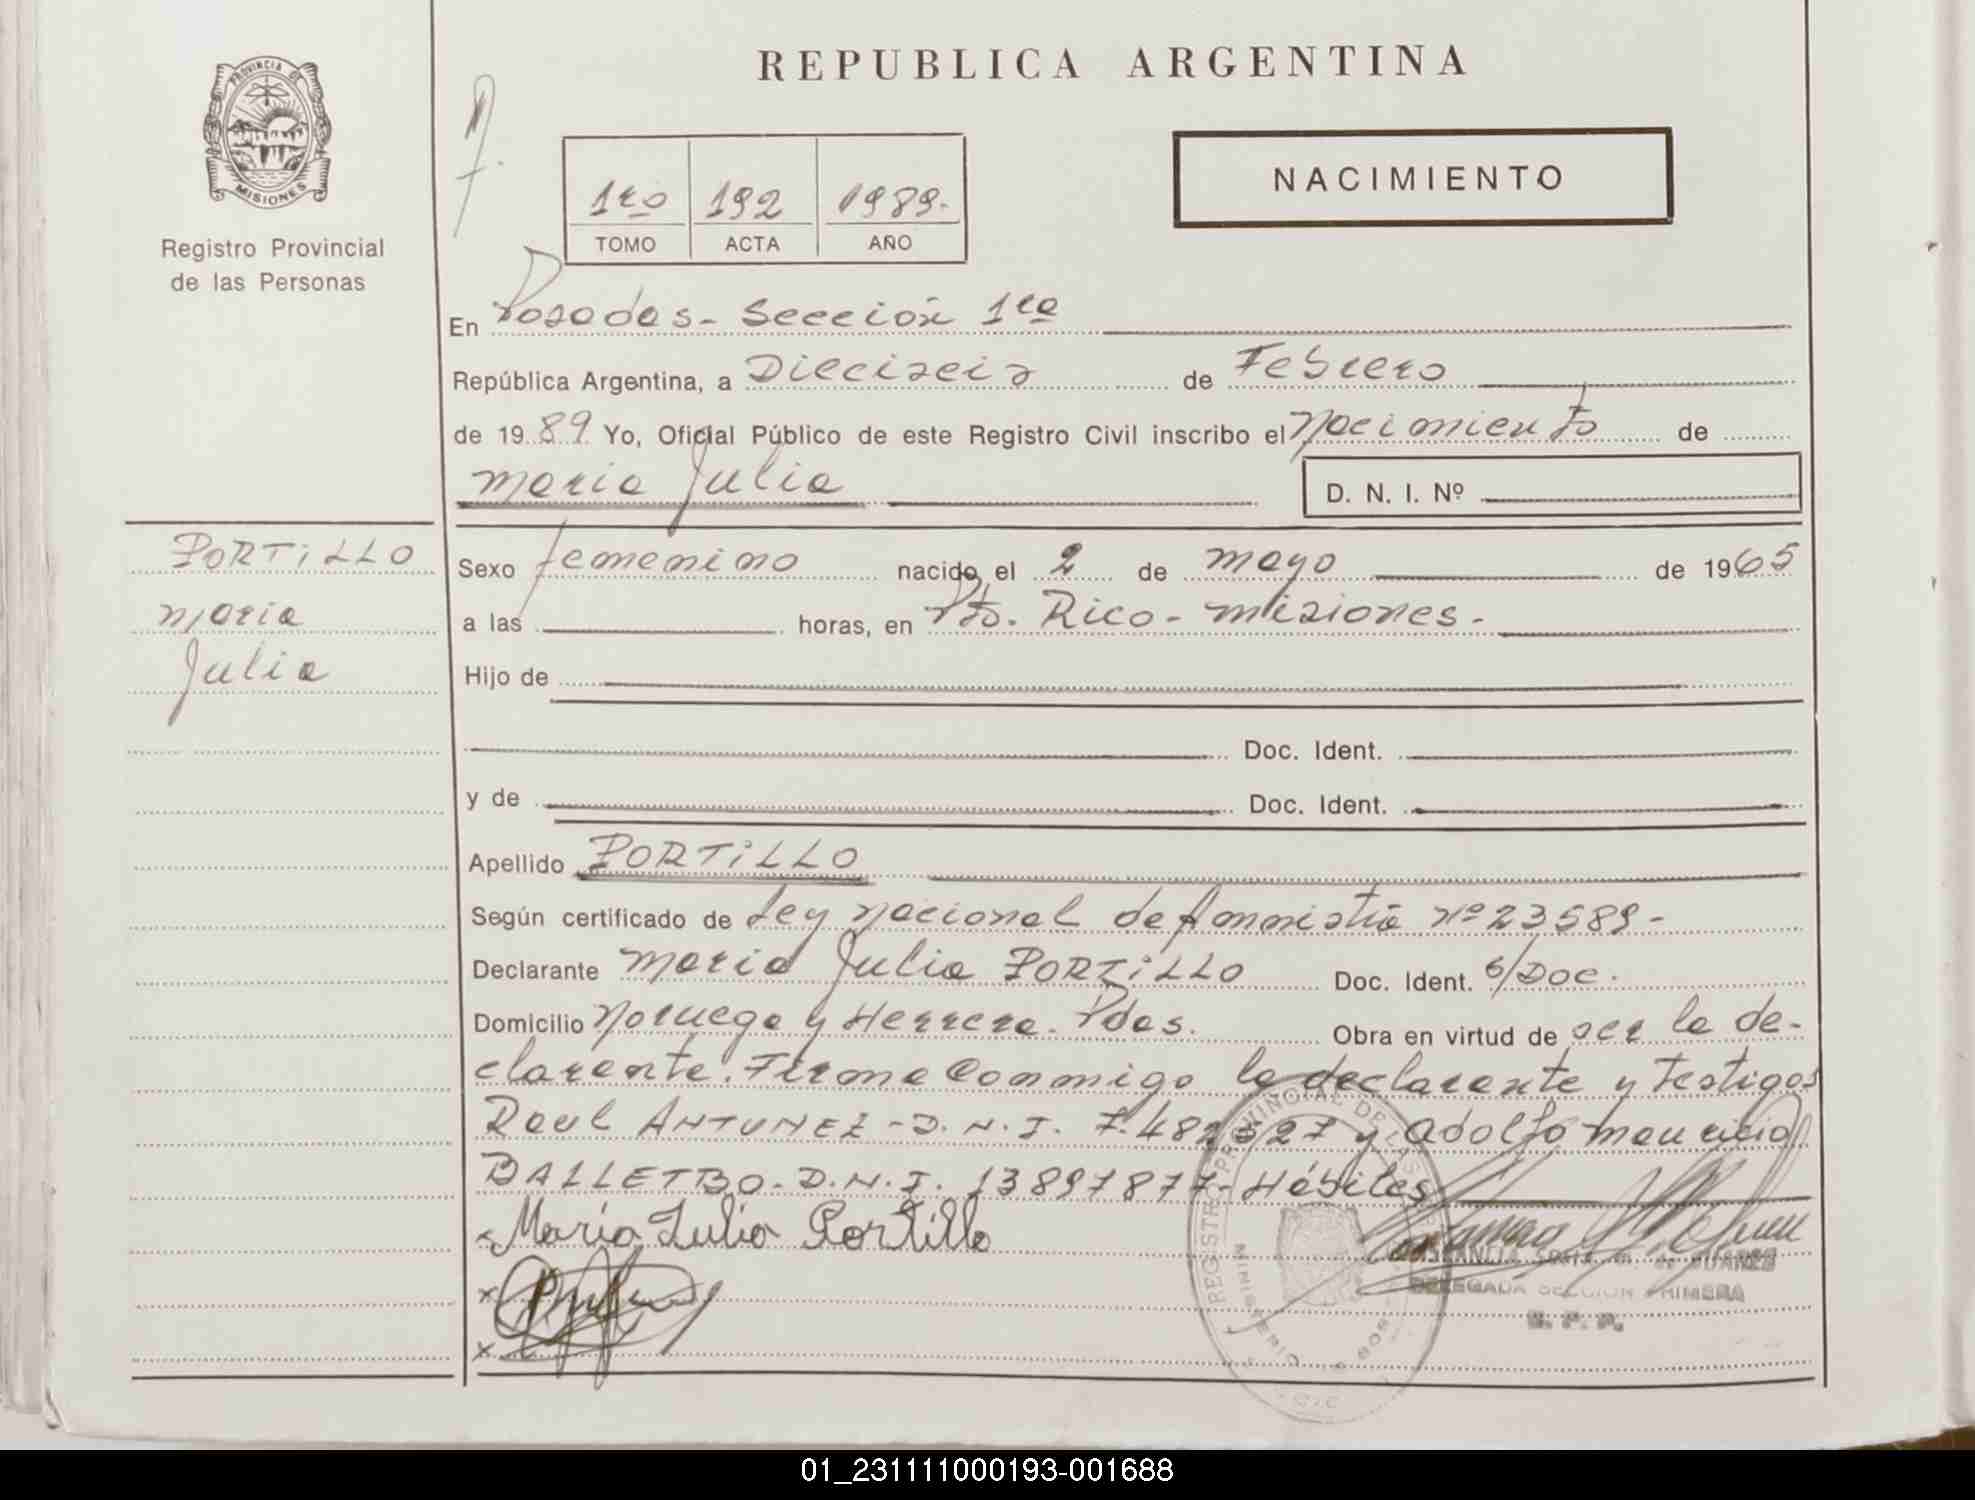 REPUBLICA ARGENTINA
PROVINCIA DE
MISIONES
Registro Provincial
de las Personas
1ro 192 1989.
TOMO ACTA AÑO
NACIMIENTO
En Posadas - Sección 1ra
República Argentina, a Dieciseis de Febrero
de 1989 Yo, Oficial Público de este Registro Civil inscribo el Nacimiento de
Maria Julia
D. N. I. Nº
PORTiLLO
Maria
Julia
Sexo femenino nacido el 2 de mayo de 1965
a las horas, en Pto. Rico - Misiones -
Hijo de
Doc. Ident.
y de Doc. Ident.
Apellido PORTiLLO
Según certificado de Ley Nacional de Ammistia Nº 23589 -
Declarante Maria Julia PORTiLLO Doc. Ident. S/Doc.
Domicilio Noruega y Herrera. Pdas. Obra en virtud de ser la de-
clarante. Firma Conmigo la declarante y Testigos
Raul ANTUNEZ - D.N.I. 7.482527 y Adolfo Mauricio
BALLETBO - D.N.I. 13897877 - Hábiles
Maria Julia Portillo
REGISTRO PROVINCIAL DE LAS
MINISTERIO DE GOB
DELEGADA SECCION PRIMERA
R. P. P.
01_231111000193-001688